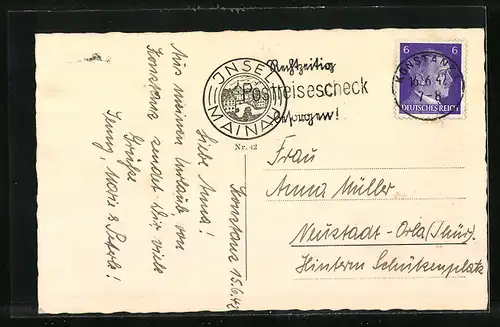 Konstanz 15.6.42
Liebe Anna!
Aus meinem Urlaub von
Konstanz sendet Dir viele
Grüße
Jenny, Marie &
INSEL
MAINAU
Rechtzeitig
Postreisescheck
besorgen!
Nr. 42
6 6
KONSTANZ
16.6.42
7-8
DEUTSCHES REICH
Frau
Anna Müller
Neustadt-Orla (Thür).
Hinterm Schützenplatz